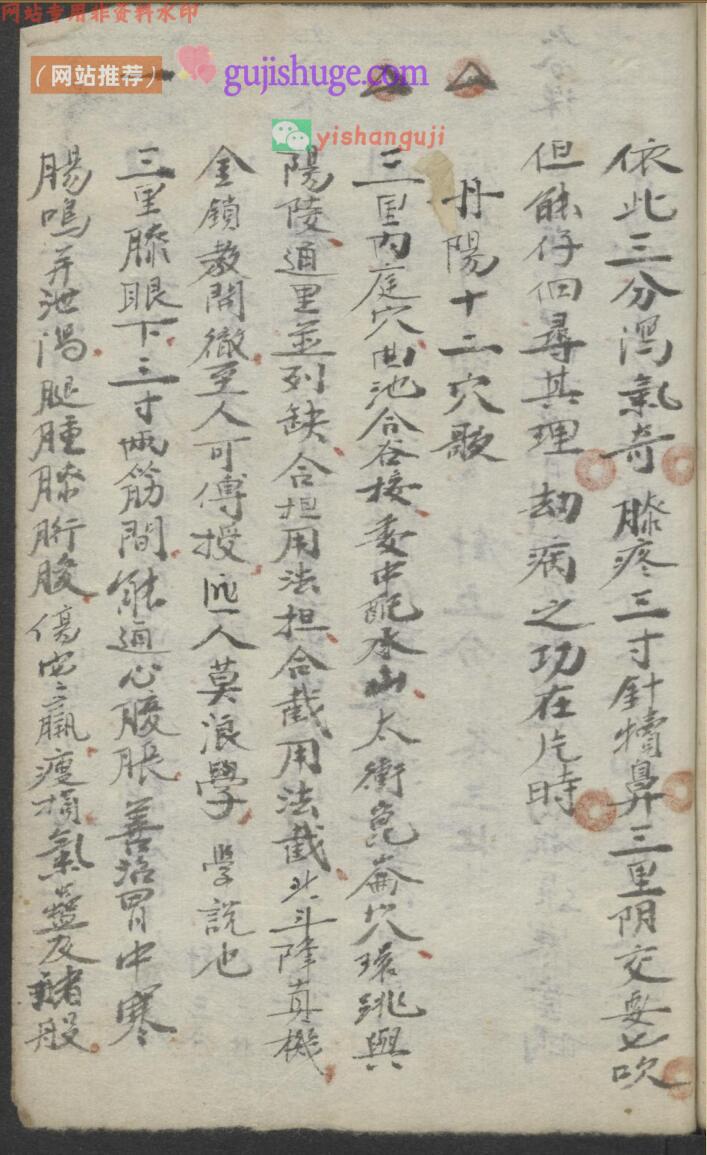 网站专用非资料水印
（网站推荐）
gujishuge.com
yishanguji
依此三分瀉氣奇膝疼三寸針犢鼻三里阴交要七吹
但能仔细尋其理劫病之功在片時
丹陽十二穴歌
三里内庭穴曲池合谷接委中配承山太衝崑崙穴環跳與
陽陵通里並列缺合担用法担合截用法截北斗降真機
金鎖教開徹至人可傅授匪人莫浪學 學說也
三里膝眼下三寸两筋間能通心腹脹善治胃中寒
腸鳴并泄瀉腿腫膝胻酸傷寒羸瘦損氣蠱及諸般